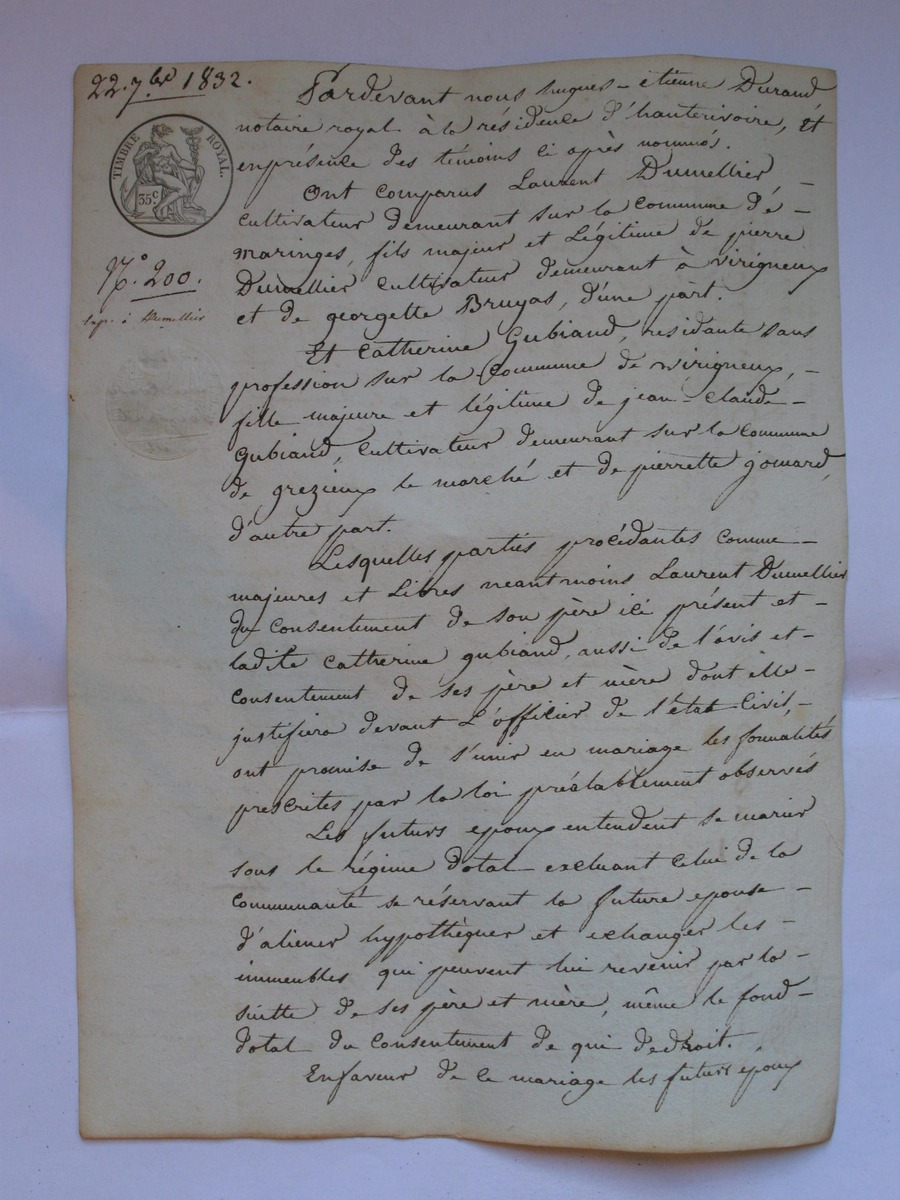 22. 7.bre 1832.
TIMBRE ROYAL.
35 c
N.° 200.
Exp. à Dumellier
Pardevant nous hugues - étienne Durand
notaire royal à la résidence d'hauterivoire, Et
enprésence des témoins ci après nommés.
Ont comparus Laurent Dumellier -
cultivateur demeurant sur la commune de -
maringes, fils majeur et Légitime de pierre
Dumellier cultivateur demeurant à virigneux
et de georgette Bruyas, d'une part.
Et Catherine Gubiand, residante sans
profession sur la Commune de virigneux, -
fille majeure et légitime de jean - Claude -
Gubiand, Cultivateur demeurant sur la commune
de grezieux le marché et de pierrette jomard,
d'autre part.
Lesquelles parties procédantes comme -
majeures et Libres neantmoins Laurent Dumellier
du consentement de son père ici présent et -
ladite Catherine gubiand, aussi de l'avis et -
consentement de ses père et mère dont elle -
justifiera devant L'officier de l'état Civil, -
ont promise de s'unir en mariage les formalités
prescrites par la loi préalablement observés
Les futurs epoux entendent se marier
sous le régime dotal excluant celui de la
Communauté se réservant la future epouse -
d'aliener hypothèquer et exchanger les -
immeubles qui peuvent lui revenir par la -
suitte de ses père et mère, même le fond -
dotal du Consentement de qui dedroit.
Enfaveur de ce mariage les futurs époux